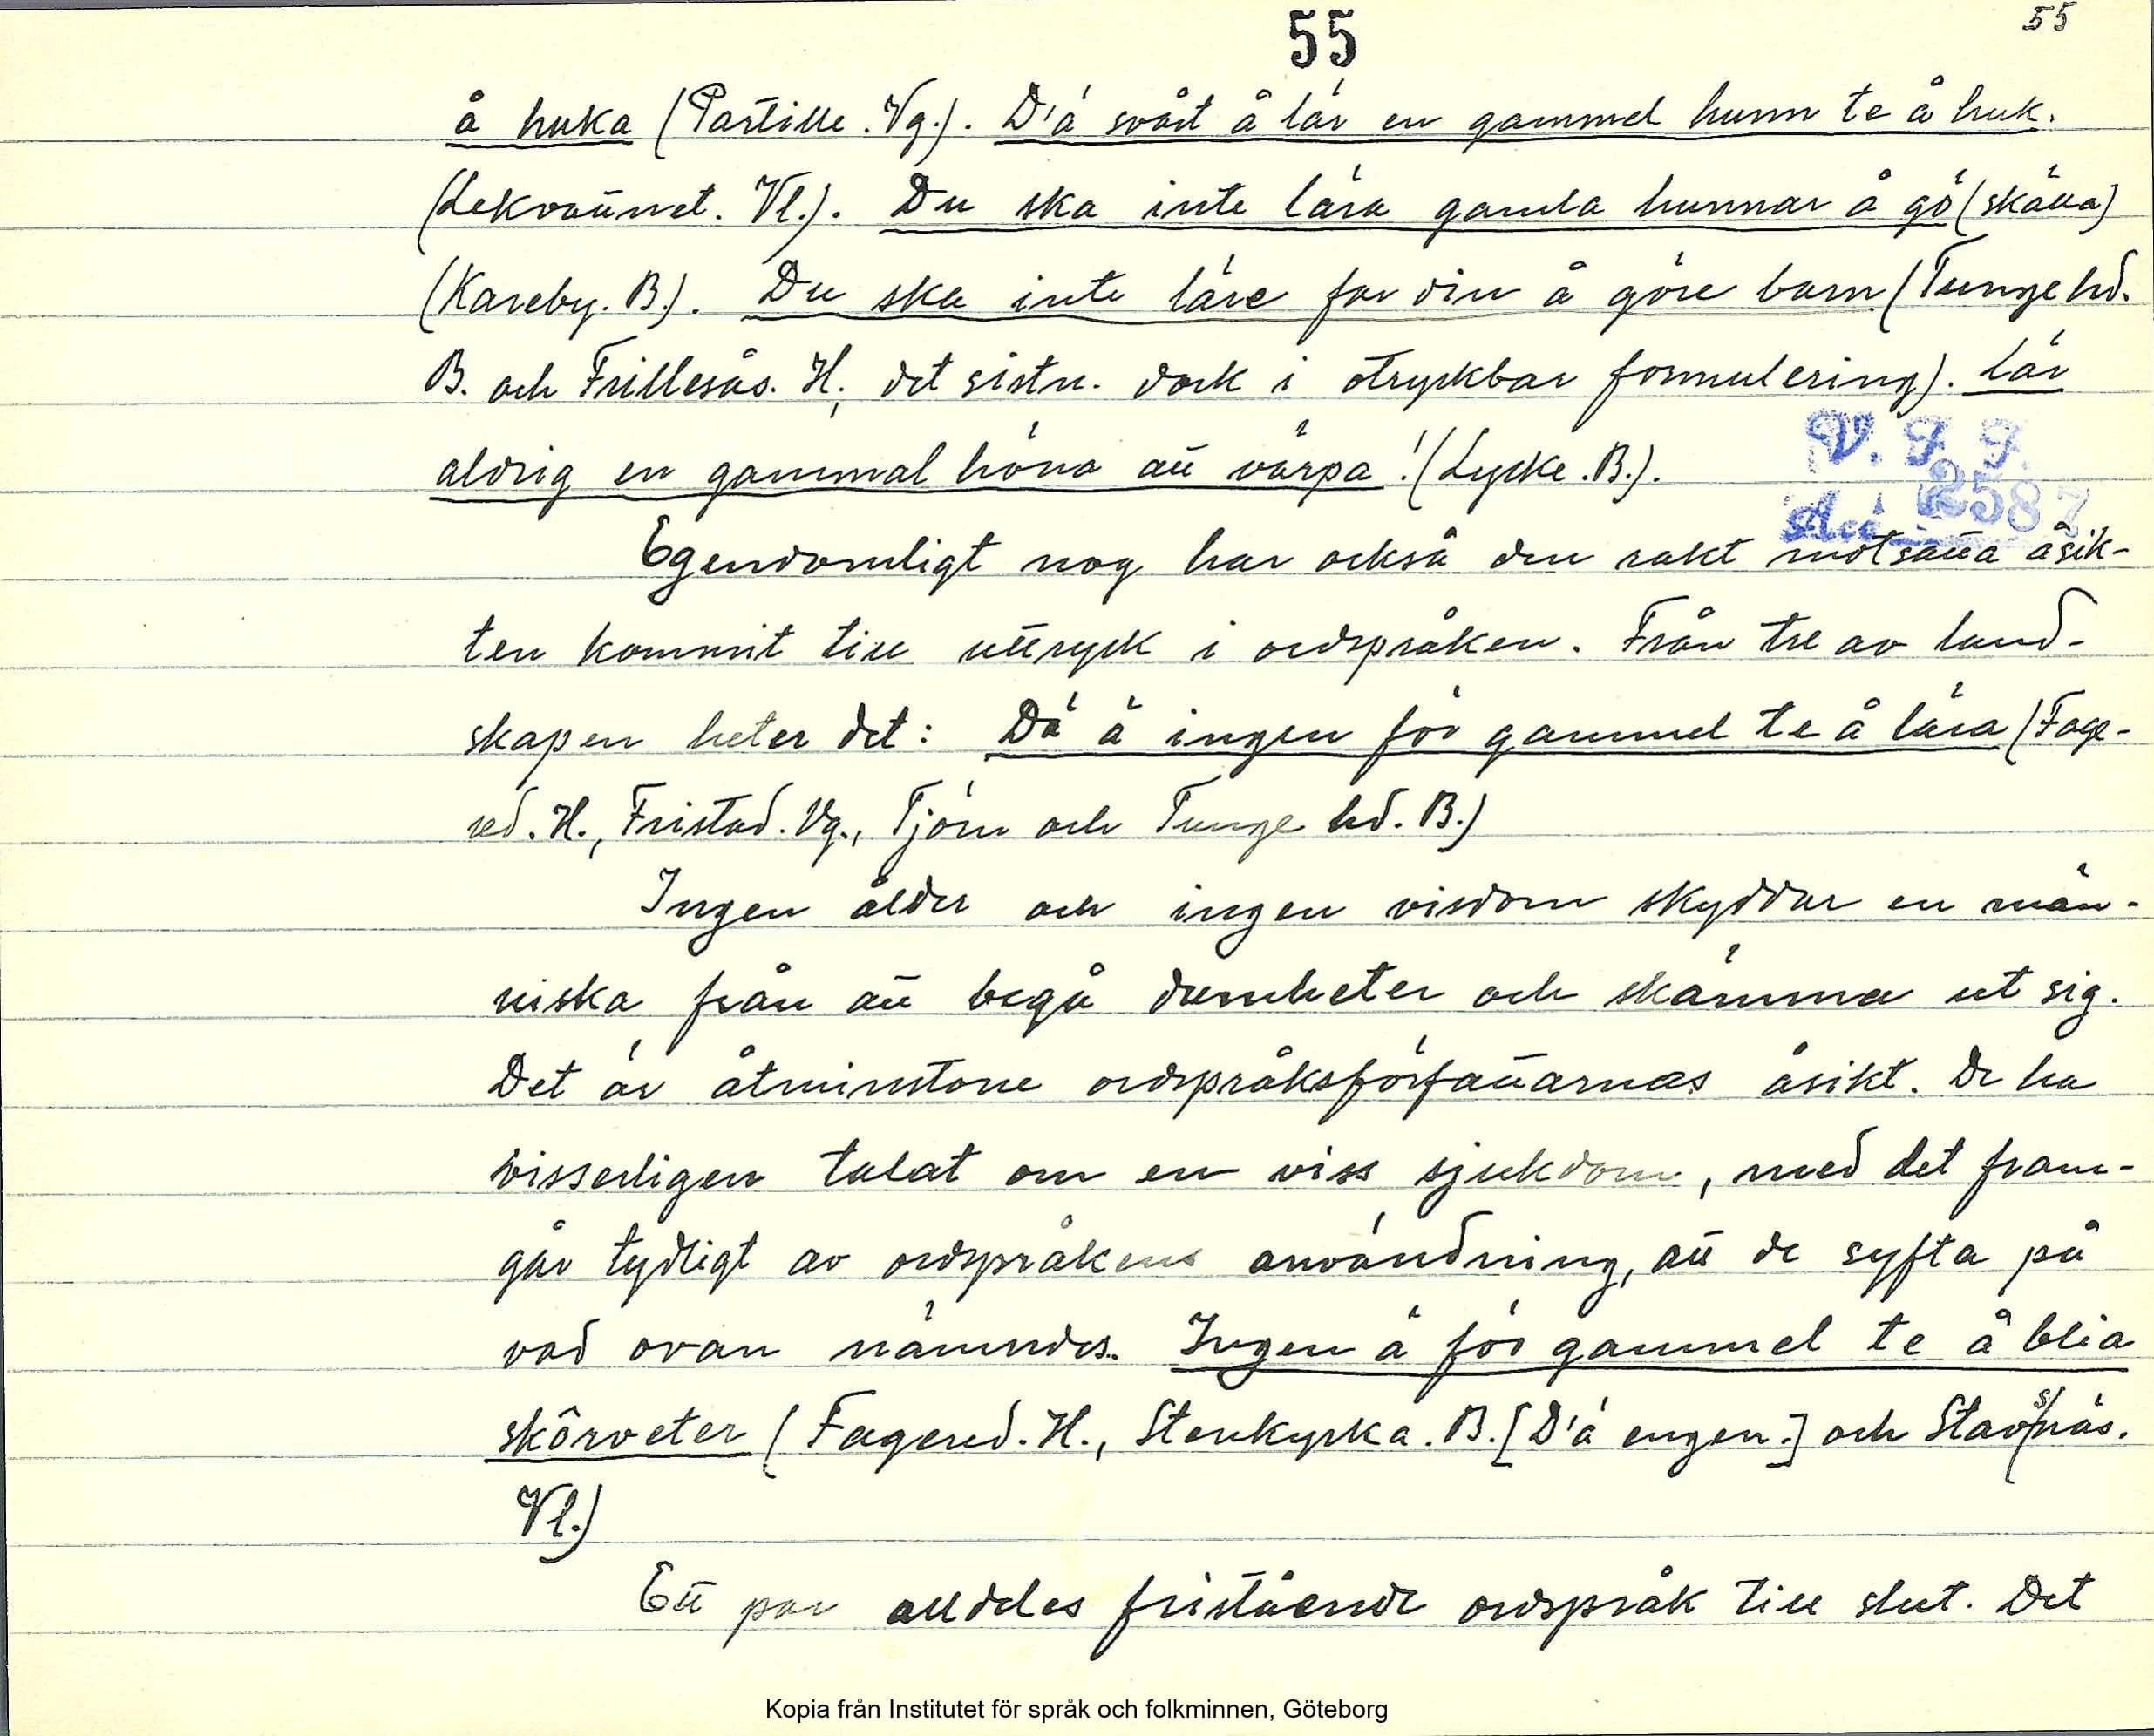 55
55
å huka (Partille. Vg.). D'ä svårt å lär en gammel hunn te å huk.
(Lekvattnet. Vl.). Du ska inte lära gamla hunnar å gö (skälla)
(Kareby. B.). Du ska inte läre far din å göre barn (Tunge hd.
B. och Frillesås. H., det sistn. dock i otryckbar formulering). Lär
aldrig en gammal höna att värpa! (Lycke. B.).
V. F. F.
Acc. 2587
Egendomligt nog har också den rakt motsatta åsik-
ten kommit till uttryck i ordspråken. Från tre av land-
skapen heter det: Dä ä ingen för gammel te å lära (Fage-
red. H., Fristad. Vg., Tjörn och Tunge hd. B.)
Ingen ålder och ingen visdom skyddar en män-
niska från att begå dumheter och skämma ut sig.
Det är åtminstone ordspråksförfattarnas åsikt. De ha
visserligen talat om en viss sjukdom, med det fram-
går tydligt av ordspråkens användning, att de syfta på
vad ovan nämndes. Ingen ä för gammel te å blia
skörveter (Fagered. H., Stenkyrka. B. [D'ä engen.] och Stavsnäs.
Vl.)
Ett par alldeles fristående ordspråk till slut. Det
Kopia från Institutet för språk och folkminnen, Göteborg